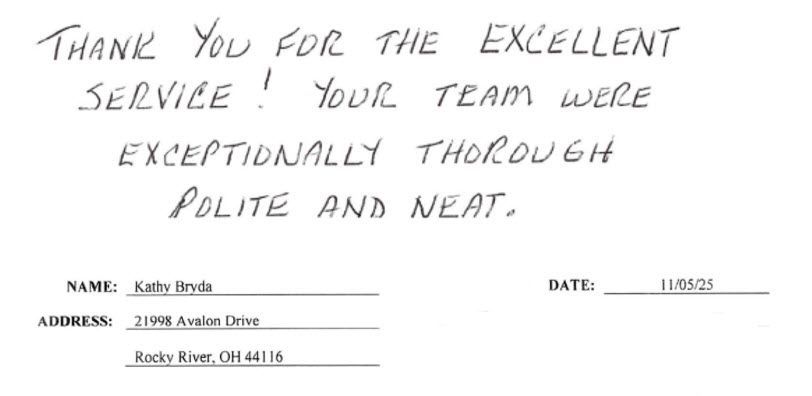 THANK YOU FOR THE EXCELLENT
SERVICE! YOUR TEAM WERE
EXCEPTIONALLY THOROUGH
POLITE AND NEAT.
NAME: Kathy Bryda
DATE: 11/05/25
ADDRESS: 21998 Avalon Drive
Rocky River, OH 44116